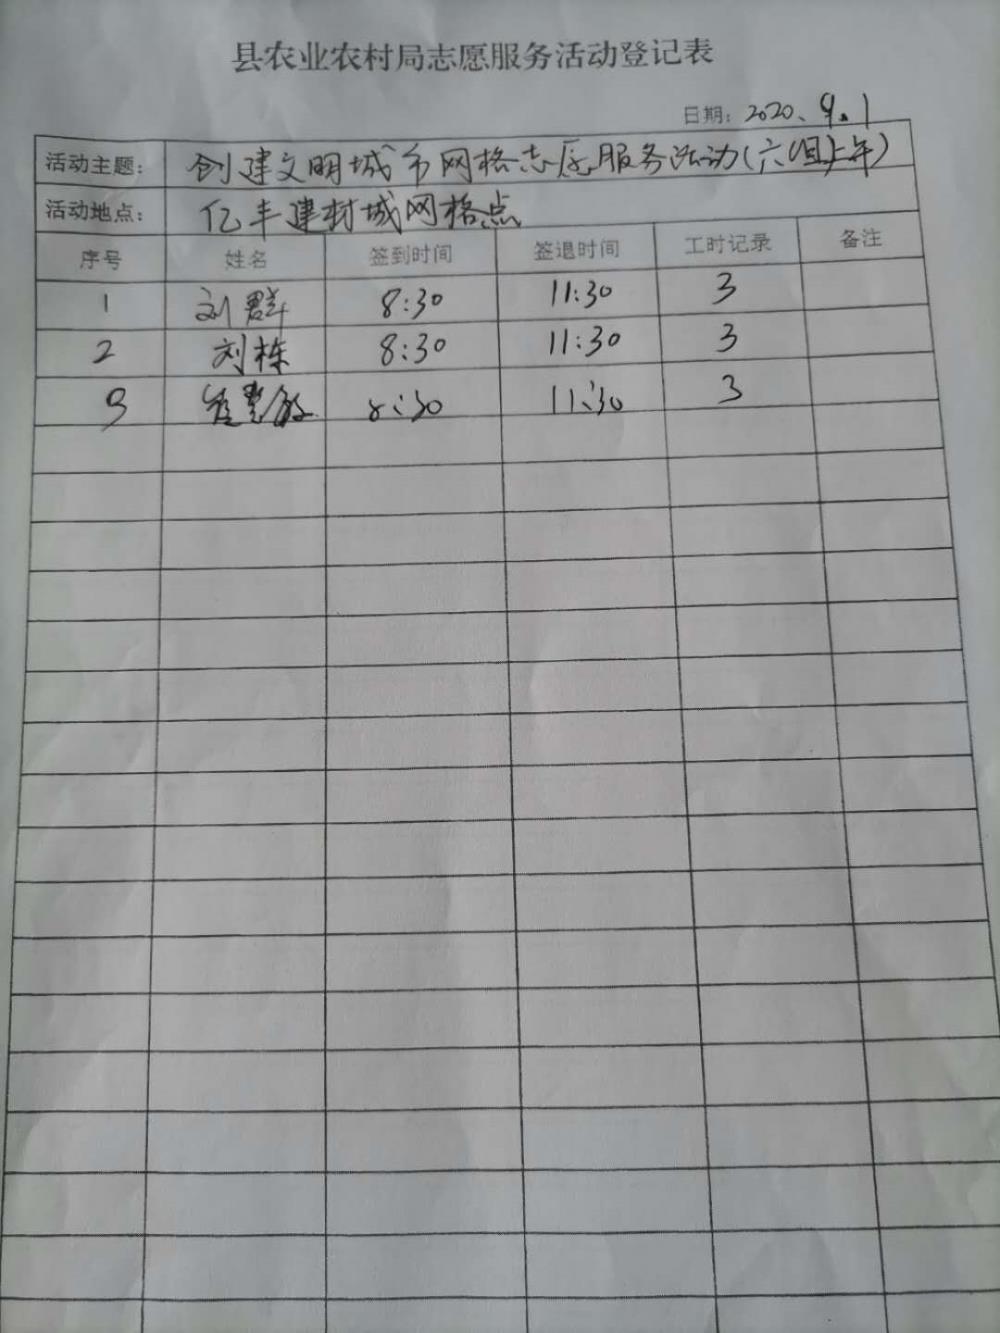 县农业农村局志愿服务活动登记表
日期：2020.9.1
活动主题：创建文明城市网格志愿服务活动(六组上午)
活动地点：亿丰建材城网格点
序号 姓名 签到时间 签退时间 工时记录 备注
1 刘群 8:30 11:30 3
2 刘栋 8:30 11:30 3
3 8:30 11:30 3